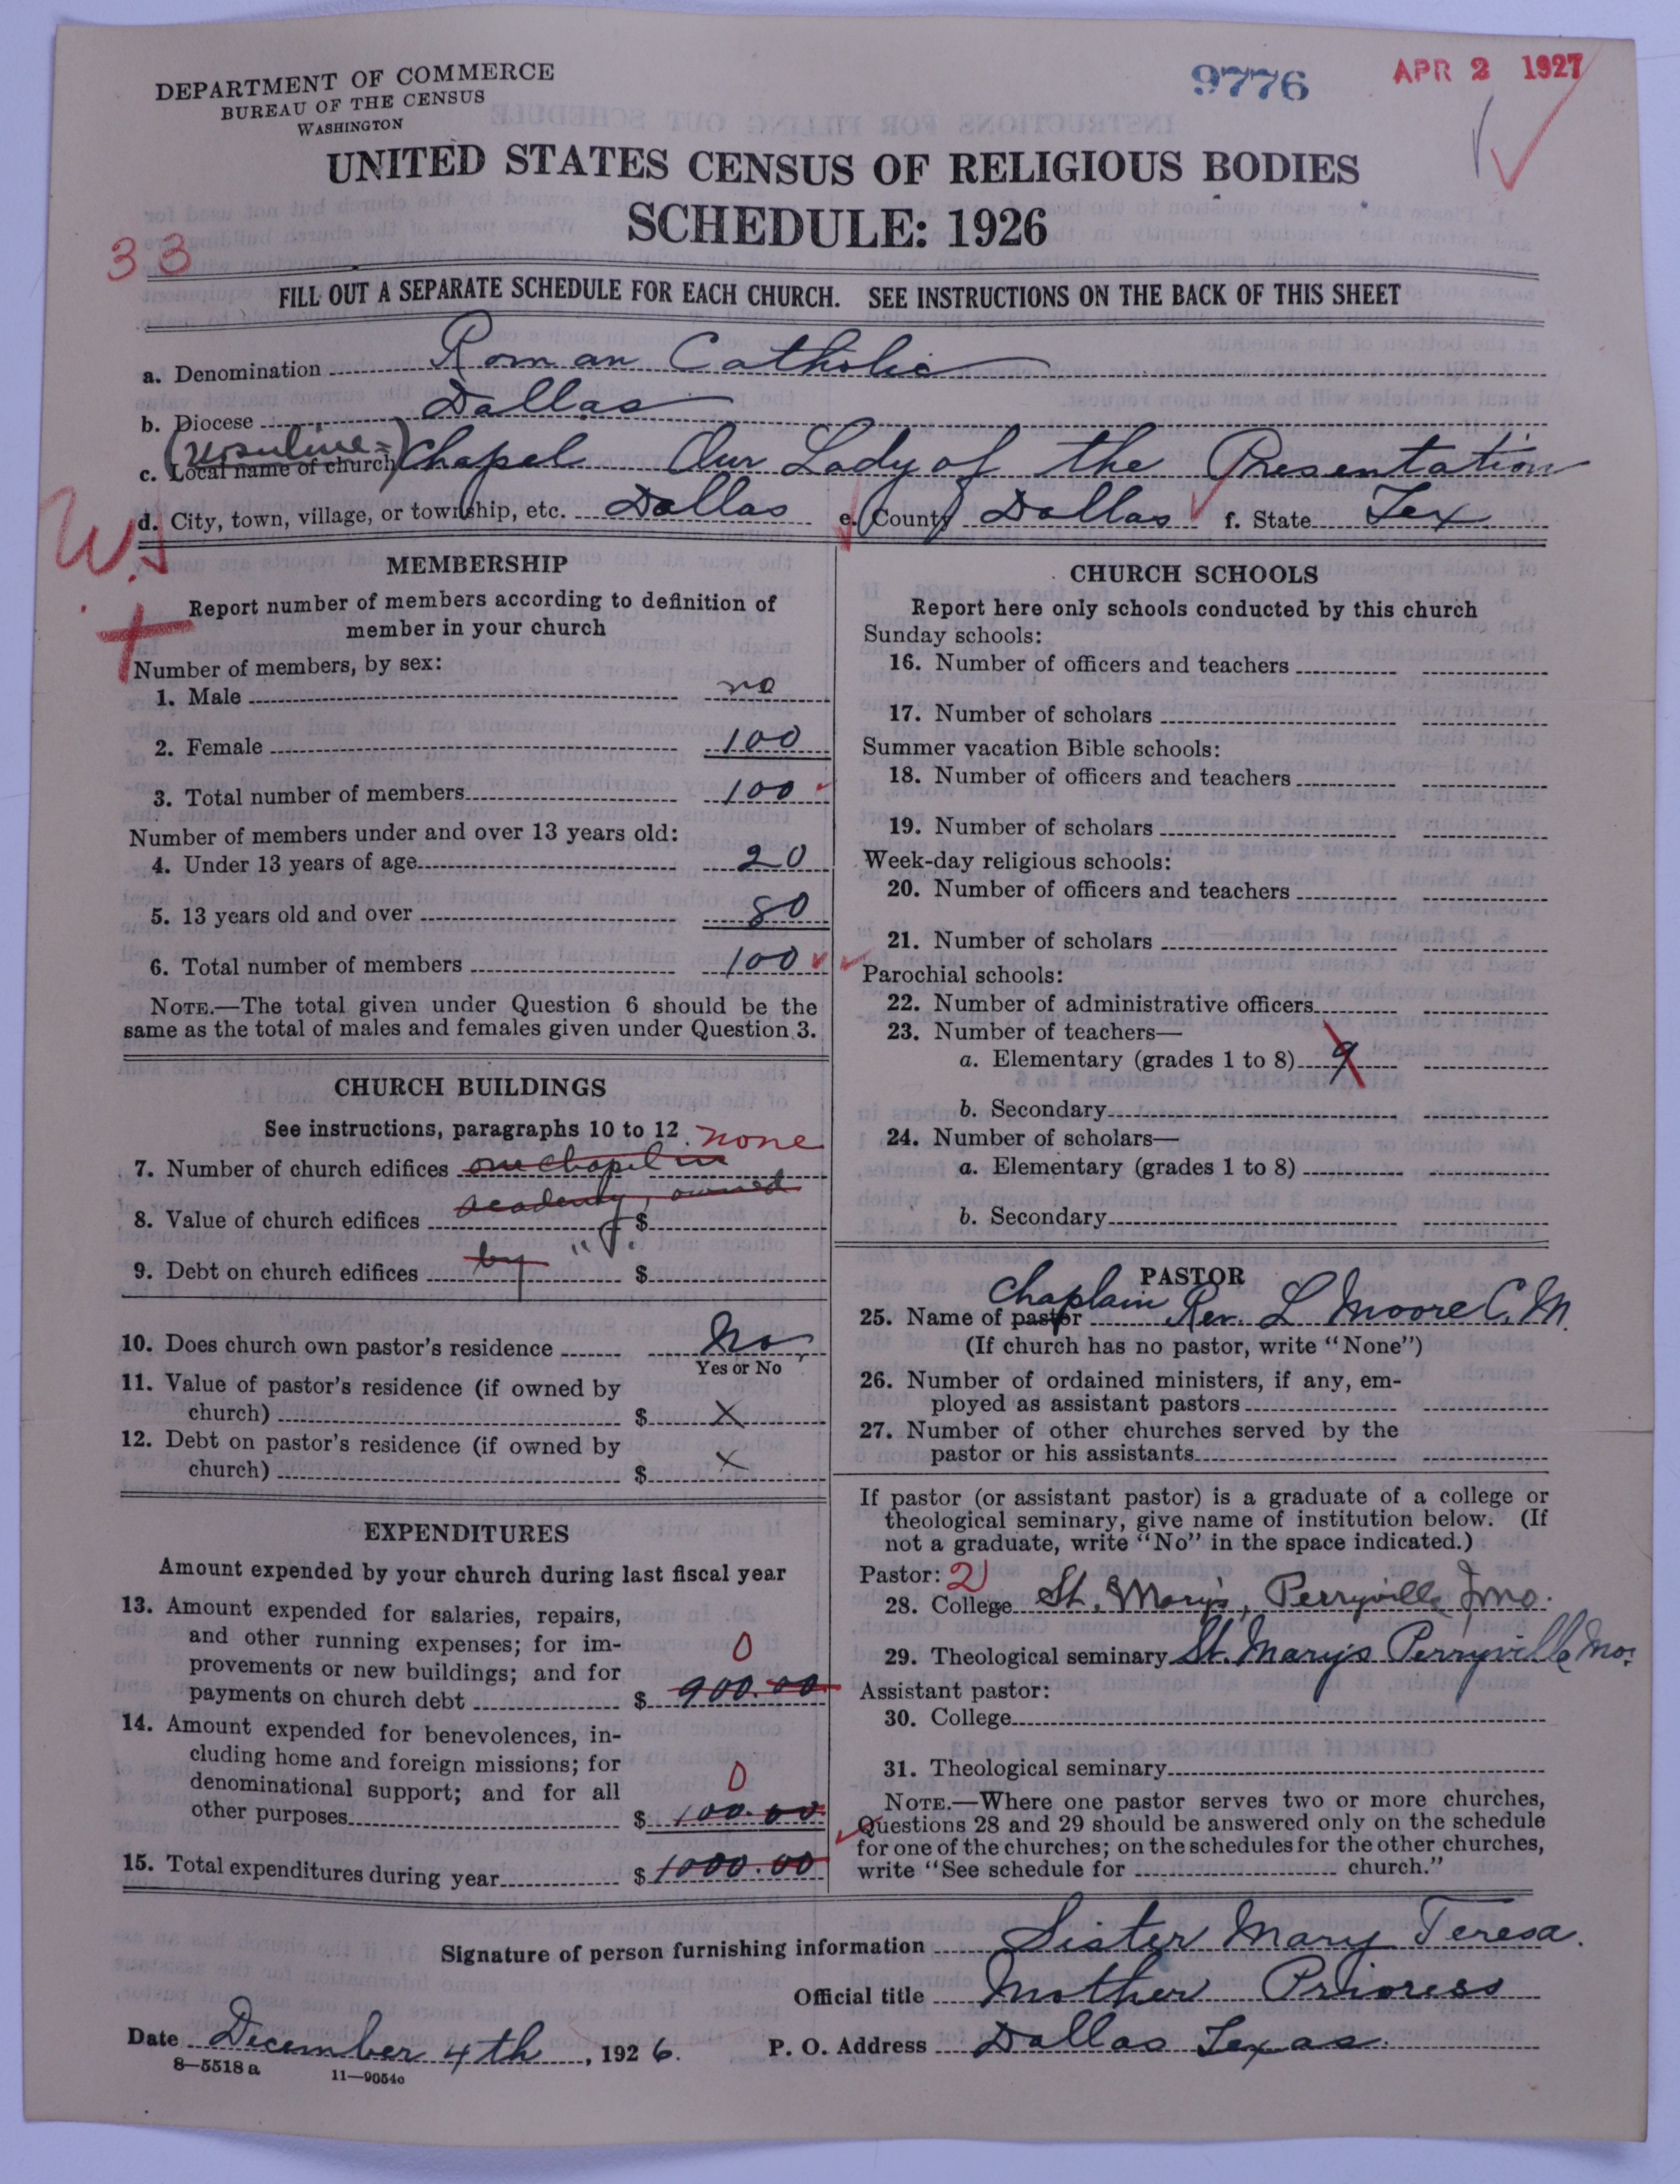 DEPARTMENT OF COMMERCE
BUREAU OF THE CENSUS
WASHINGTON
9776
APR 2 1927
UNITED STATES CENSUS OF RELIGIOUS BODIES
SCHEDULE: 1926
33
FILL OUT A SEPARATE SCHEDULE FOR EACH CHURCH. SEE INSTRUCTIONS ON THE BACK OF THIS SHEET
a. Denomination Roman Catholic
b. Diocese Dallas
(Ursuline)
c. Local name of church Chapel Our Lady of the Presentation
d. City, town, village, or township, etc. Dallas e. County Dallas f. State Tex
MEMBERSHIP
Report number of members according to definition of
member in your church
Number of members, by sex:
1. Male no
2. Female 100
3. Total number of members 100
Number of members under and over 13 years old:
4. Under 13 years of age 20
5. 13 years old and over 80
6. Total number of members 100
NOTE.—The total given under Question 6 should be the
same as the total of males and females given under Question 3.
CHURCH BUILDINGS
See instructions, paragraphs 10 to 12
none
7. Number of church edifices one chapel in
academy, owned
8. Value of church edifices $
by "
9. Debt on church edifices $
10. Does church own pastor's residence No
Yes or No
11. Value of pastor's residence (if owned by
church) $ X
12. Debt on pastor's residence (if owned by
church) $ X
EXPENDITURES
Amount expended by your church during last fiscal year
13. Amount expended for salaries, repairs,
and other running expenses; for im-
provements or new buildings; and for
0
payments on church debt $ 900.00
14. Amount expended for benevolences, in-
cluding home and foreign missions; for
denominational support; and for all
0
other purposes $ 100.00
15. Total expenditures during year $ 1000.00
CHURCH SCHOOLS
Report here only schools conducted by this church
Sunday schools:
16. Number of officers and teachers
17. Number of scholars
Summer vacation Bible schools:
18. Number of officers and teachers
19. Number of scholars
Week-day religious schools:
20. Number of officers and teachers
21. Number of scholars
Parochial schools:
22. Number of administrative officers
23. Number of teachers—
a. Elementary (grades 1 to 8) 9
b. Secondary
24. Number of scholars—
a. Elementary (grades 1 to 8)
b. Secondary
PASTOR
Chaplain
25. Name of pastor Rev. L Moore C.M.
(If church has no pastor, write "None")
26. Number of ordained ministers, if any, em-
ployed as assistant pastors
27. Number of other churches served by the
pastor or his assistants
If pastor (or assistant pastor) is a graduate of a college or
theological seminary, give name of institution below. (If
not a graduate, write "No" in the space indicated.)
Pastor: 2
28. College St. Mary's, Perryville Mo.
29. Theological seminary St. Mary's Perryville Mo.
Assistant pastor:
30. College
31. Theological seminary
NOTE.—Where one pastor serves two or more churches,
Questions 28 and 29 should be answered only on the schedule
for one of the churches; on the schedules for the other churches,
write "See schedule for church."
Signature of person furnishing information Sister Mary Teresa.
Official title Mother Prioress
Date December 4th, 1926. P. O. Address Dallas Texas.
8—5518 a 11—9054c